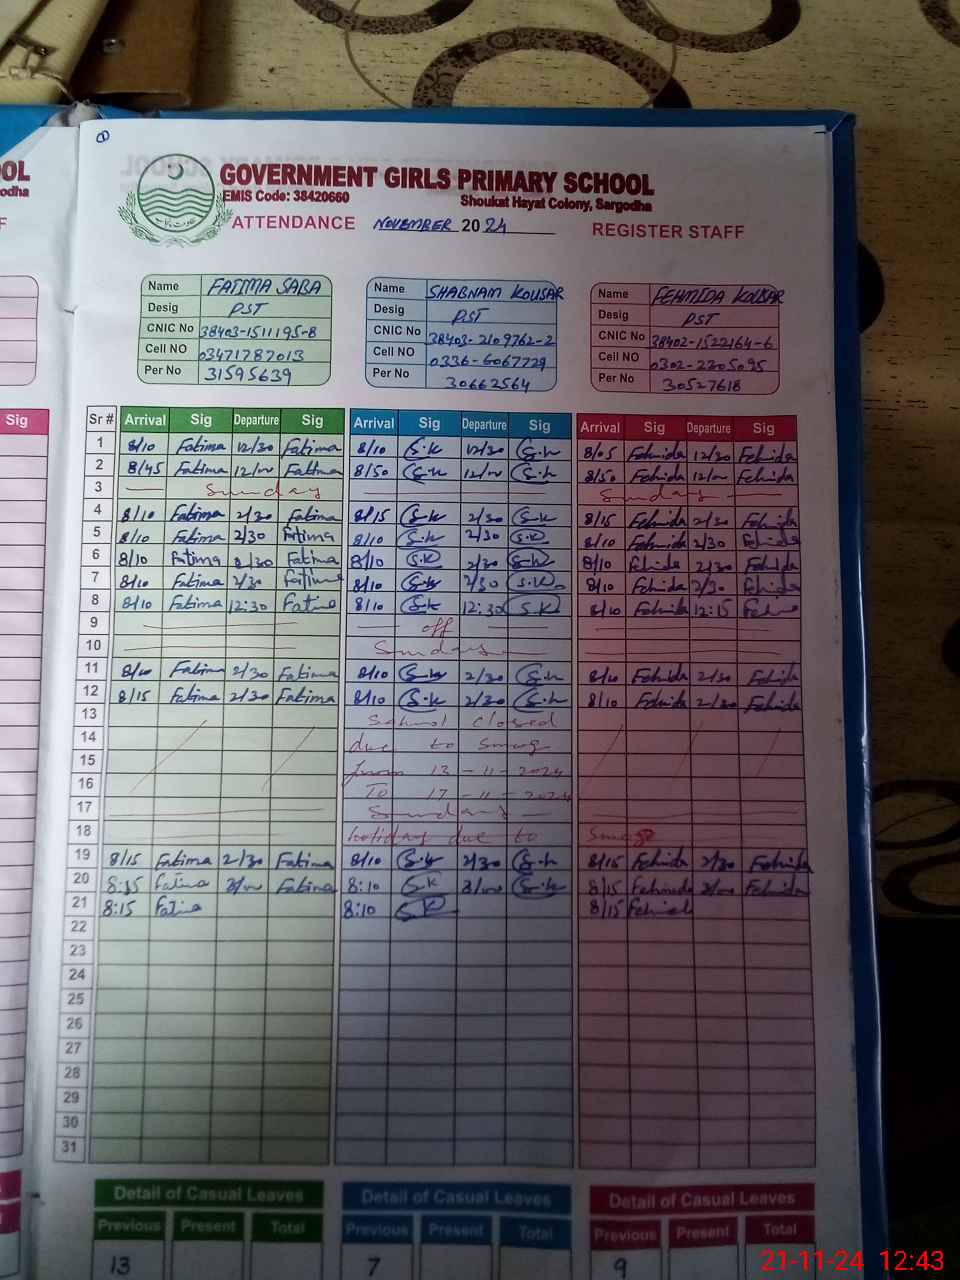 OOL
odha
F
GOVERNMENT GIRLS PRIMARY SCHOOL
EMIS Code: 38420660 Shoukat Hayat Colony, Sargodha
ATTENDANCE NOVEMBER 2024 REGISTER STAFF
Name FATIMA SABA
Desig PST
CNIC No 38403-1511195-8
Cell NO 03471787013
Per No 31595639
Name SHABNAM KOUSAR
Desig PST
CNIC No 38403-2109762-2
Cell NO 0336-6067729
Per No 30662564
Name FEHMIDA KOUSAR
Desig PST
CNIC No 38402-1522164-6
Cell NO 0302-2205095
Per No 30527618
Sig
Sr # Arrival Sig Departure Sig Arrival Sig Departure Sig Arrival Sig Departure Sig
1 8/10 Fatima 12/30 Fatima 8/10 S.K 12/30 S.K 8/05 Fehmida 12/30 Fehmida
2 8/45 Fatima 12/00 Fatima 8/50 S.K 12/00 S.K 8/50 Fehmida 12/00 Fehmida
3 Sunday Sunday
4 8/10 Fatima 2/30 Fatima 8/15 S.K 2/30 S.K 8/15 Fehmida 2/30 Fehmida
5 8/10 Fatima 2/30 Fatima 8/10 S.K 2/30 S.K 8/10 Fehmida 2/30 Fehmida
6 8/10 Fatima 2/30 Fatima 8/10 S.K 2/30 S.K 8/10 Fehmida 2/30 Fehmida
7 8/10 Fatima 2/30 Fatima 8/10 S.K 2/30 S.K 8/10 Fehmida 2/30 Fehmida
8 8/10 Fatima 12:30 Fatima 8/10 S.K 12:30 S.K 8/10 Fehmida 12:15
9 off
10 Sunday
11 8/10 Fatima 2/30 Fatima 8/10 S.K 2/30 S.K 8/10 Fehmida 2/30 Fehmida
12 8/15 Fatima 2/30 Fatima 8/10 S.K 2/30 S.K 8/10 Fehmida 2/30 Fehmida
13 School closed
14 due to Smog
15 from 13-11-2024
16 To 17-11-2024
17 Sunday
18 holiday due to Smog
19 8/15 Fatima 2/30 Fatima 8/10 S.K 2/30 S.K 8/15 Fehmida 2/30 Fehmida
20 8:15 Fatima 2/00 Fatima 8:10 S.K 2/00 S.K 8/15 Fehmida 2/00 Fehmida
21 8:15 Fatima 8:10 S.K 8/15 Fehmida
22
23
24
25
26
27
28
29
30
31
Detail of Casual Leaves Detail of Casual Leaves Detail of Casual Leaves
Previous Present Total Previous Present Total Previous Present Total
13 7 9
21-11-24 12:43